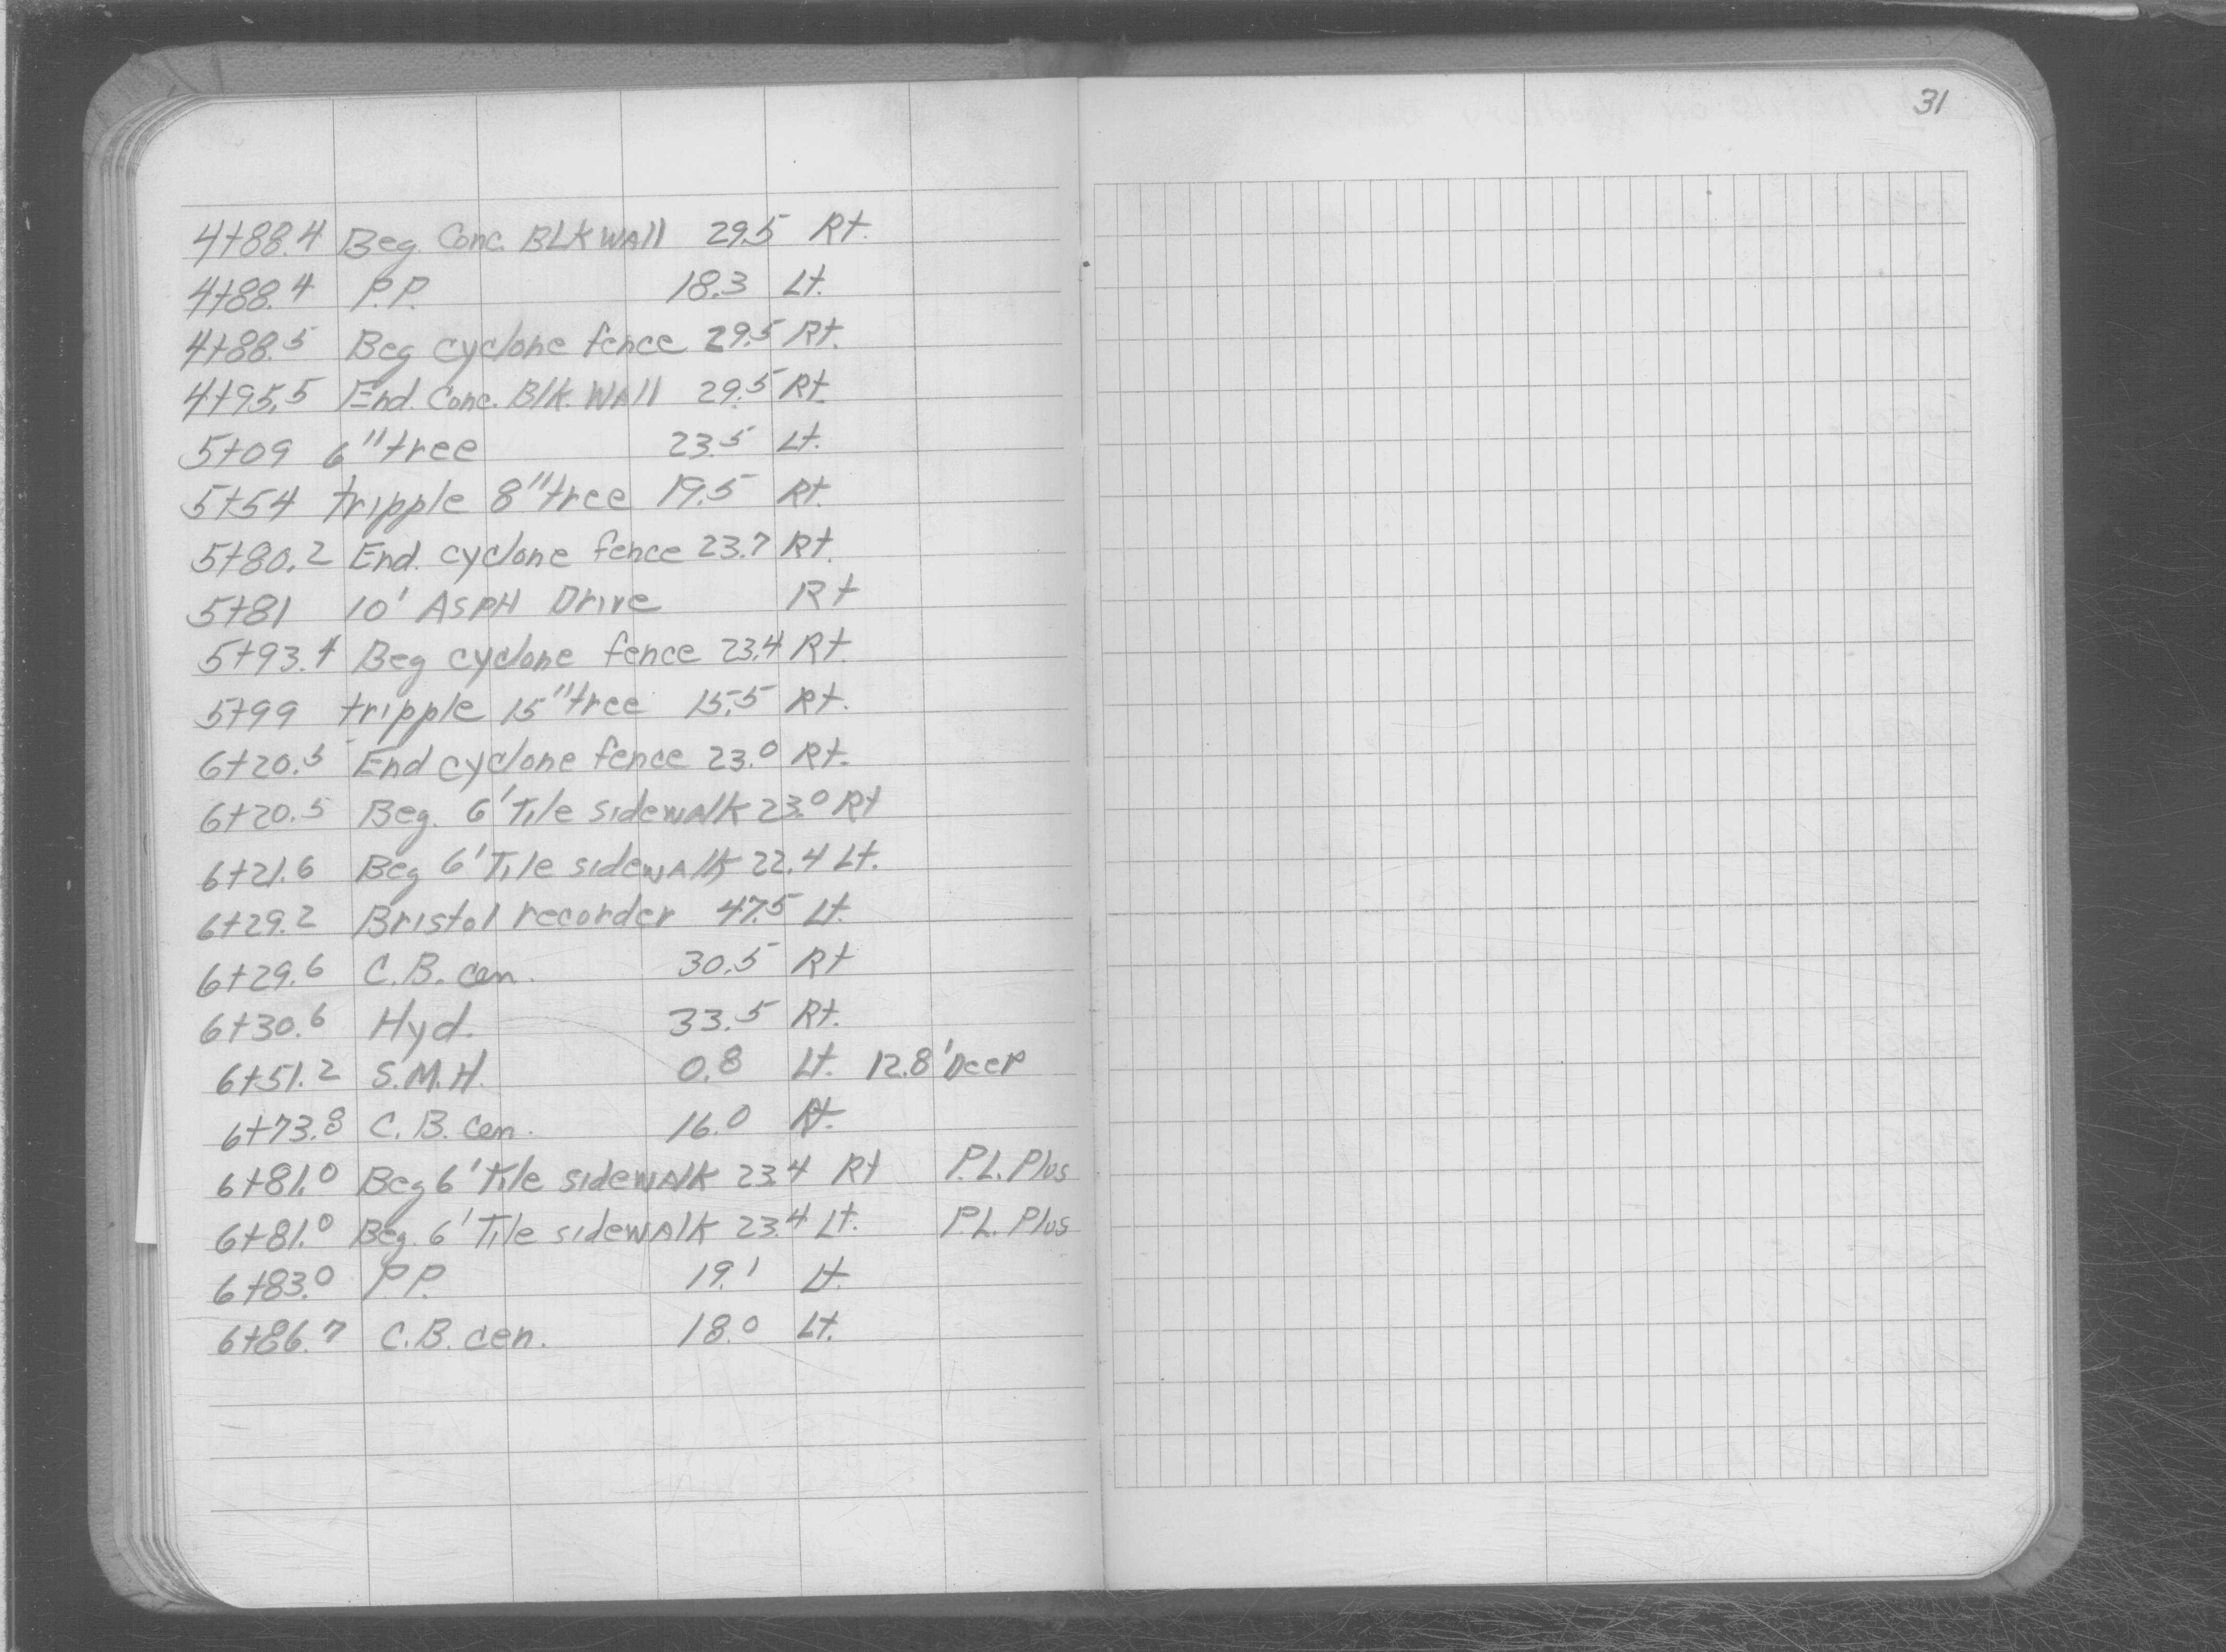 31
4+88.4 Beg. Conc. BLK WAll 29.5 Rt.
4+88.4 P.P. 18.3 Lt.
4+88.5 Beg cyclone fence 29.5 Rt.
4+95.5 End. Conc. Blk. WAll 29.5 Rt.
5+09 6" tree 23.5 Lt.
5+54 tripple 8" tree 19.5 Rt.
5+80.2 End. cyclone fence 23.7 Rt.
5+81 10' ASPH Drive Rt
5+93.4 Beg cyclone fence 23.4 Rt.
5+99 tripple 15" tree 15.5 Rt.
6+20.5 End cyclone fence 23.0 Rt.
6+20.5 Beg. 6' Tile sidewalk 23.0 Rt
6+21.6 Beg 6' Tile sidewalk 22.4 Lt.
6+29.2 Bristol recorder 47.5 Lt.
6+29.6 C.B. cen. 30.5 Rt
6+30.6 Hyd. 33.5 Rt.
6+51.2 S.M.H. 0.8 Lt. 12.8' Deep
6+73.8 C.B. cen. 16.0 Rt.
6+81.0 Beg 6' Tile sidewalk 23.4 Rt P.L. Plus
6+81.0 Beg. 6' Tile sidewalk 23.4 Lt. P.L. Plus
6+83.0 P.P. 19.1 Lt.
6+86.7 C.B. cen. 18.0 Lt.